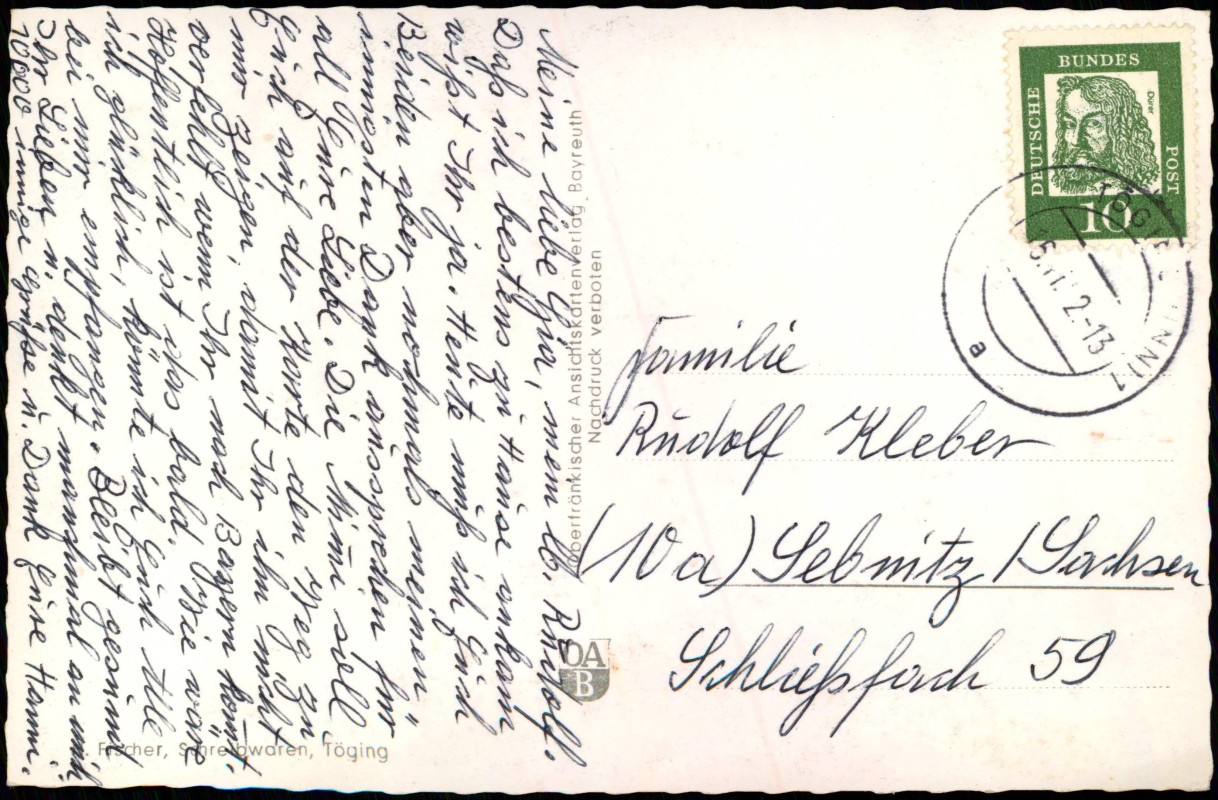 Meine liebe Gia, mein lb. Rudolf.
Daß ich bestens zu Hause ankam
wißt Ihr ja. Heute muß ich Euch
Beiden aber nochmals meinen
innigsten Dank aussprechen für
all Eure Liebe. Die Mimi soll
Euch auf der Karte den Weg zu
mir zeigen, damit Ihr ihn nicht
verfehlt wenn Ihr nach Bayern könnt.
Hoffentlich ist das bald. Wie wäre
ich glücklich, könnte ich Euch Alle
bei mir empfangen. Bleibt gesund
Ihr Lieben u. denkt manchmal an mich
10000 innige Grüße u. Dank Eure Hanni.
Oberfränkischer Ansichtskartenverlag Bayreuth
Nachdruck verboten
OA
B
Fischer, Schreibwaren, Töging
DEUTSCHE
BUNDES
POST
Dürer
10
2.-13
a
Familie
Rudolf Kleber
(10a) Sebnitz / Sachsen
Schließfach 59